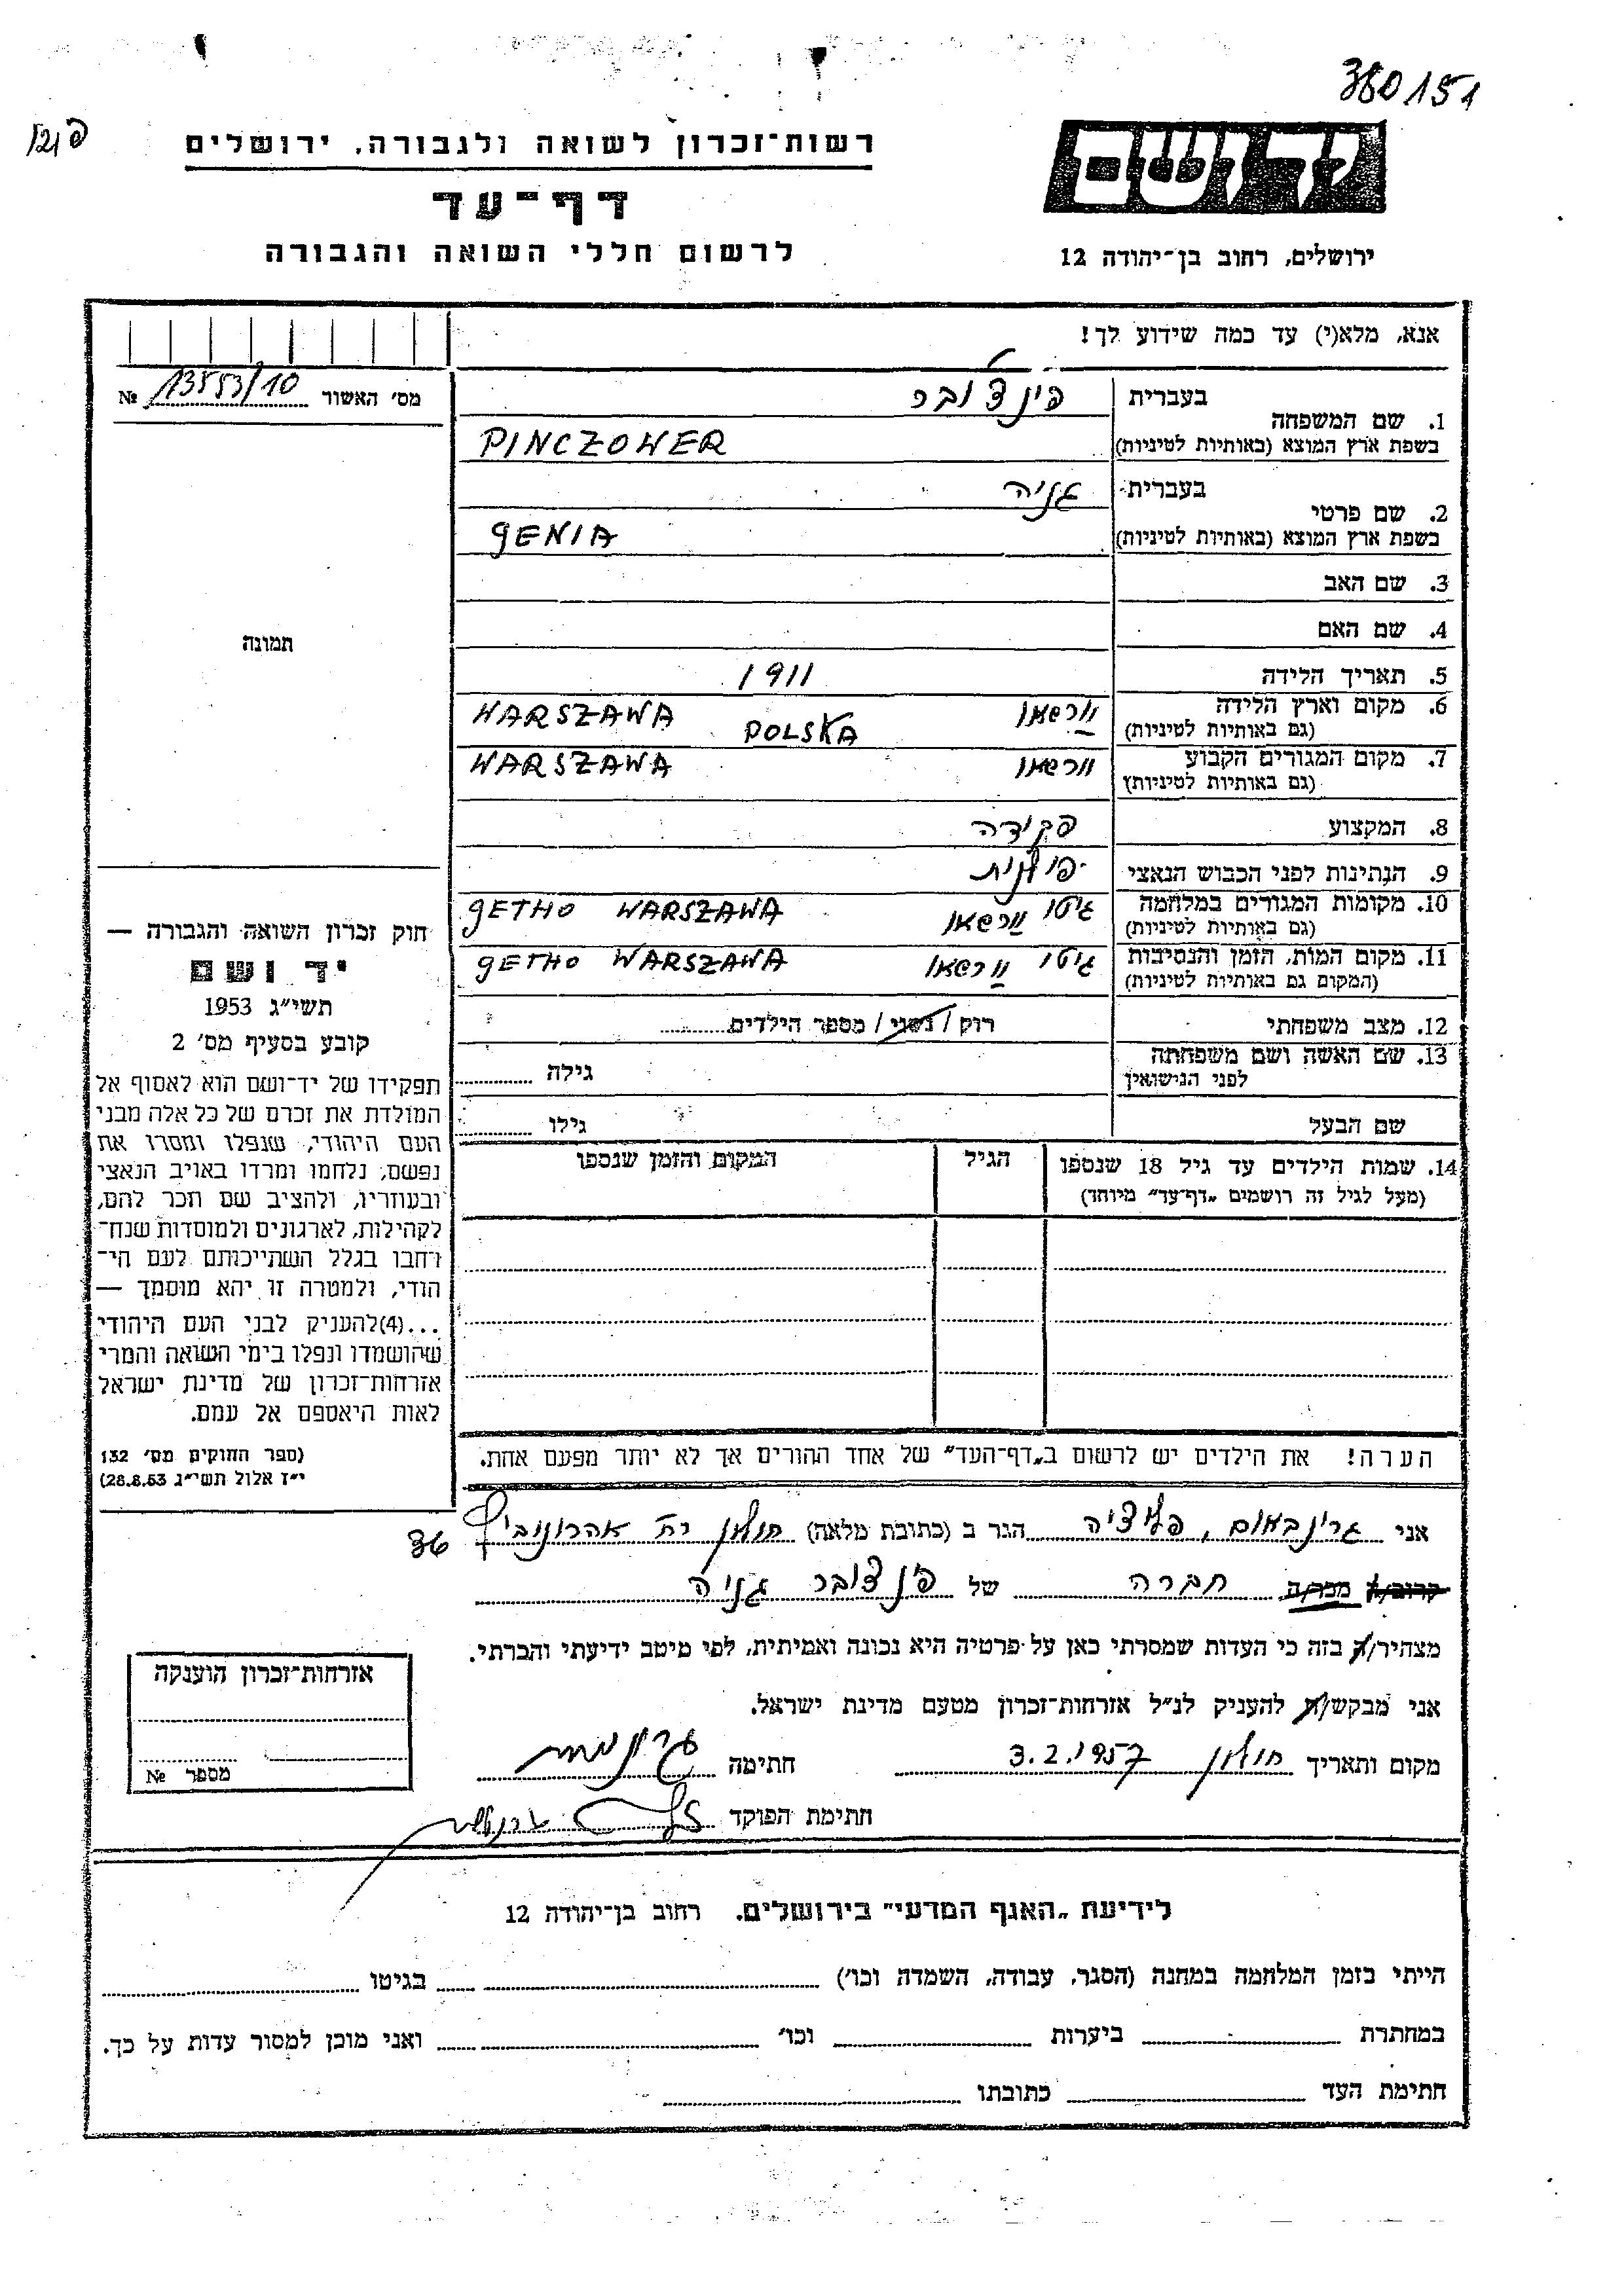 380151
רשות־זכרון לשואה ולגבורה, ירושלים
דף־עד
לרשום חללי השואה והגבורה
ידושם
ירושלים, רחוב בן־יהודה 12
אנא, מלא(י) עד כמה שידוע לך!
מס' האשור №
1. שם המשפחה
בעברית פינצ'ובר
בשפת ארץ המוצא (באותיות לטיניות) PINCZOWER
2. שם פרטי
בעברית גניה
בשפת ארץ המוצא (באותיות לטיניות) GENIA
3. שם האב
4. שם האם
5. תאריך הלידה 1911
6. מקום וארץ הלידה (גם באותיות לטיניות) וורשאו WARSZAWA POLSKA
7. מקום המגורים הקבוע (גם באותיות לטיניות) וורשאו WARSZAWA
8. המקצוע פקידה
9. הנתינות לפני הכבוש הנאצי פולנית
10. מקומות המגורים במלחמה (גם באותיות לטיניות) גיטו וורשאו GETHO WARSZAWA
11. מקום המות, הזמן והנסיבות (המקום גם באותיות לטיניות) גיטו וורשאו GETHO WARSZAWA
12. מצב משפחתי רוק / נשוי / מספר הילדים
13. שם האשה ושם משפחתה לפני הנישואין גילה
שם הבעל גילו
14. שמות הילדים עד גיל 18 שנספו הגיל המקום והזמן שנספו
(מעל לגיל זה רושמים „דף־עד” מיוחד)
הערה! את הילדים יש לרשום ב„דף־העד” של אחד ההורים אך לא יותר מפעם אחת.
תמונה
חוק זכרון השואה והגבורה —
יד ושם
תשי"ג 1953
קובע בסעיף מס' 2
תפקידו של יד־ושם הוא לאסוף אל
המולדת את זכרם של כל אלה מבני
העם היהודי, שנפלו ומסרו את
נפשם, נלחמו ומרדו באויב הנאצי
ובעוזריו, ולהציב שם וזכר להם,
לקהילות, לארגונים ולמוסדות שנח־
רחבו בגלל השתייכותם לעם הי־
הודי, ולמטרה זו יהא מוסמך —
...(4)להעניק לבני העם היהודי
שהושמדו ונפלו בימי השואה והמרי
אזרחות־זכרון של מדינת ישראל
לאות היאספם אל עמם.
(ספר החוקים מס' 132
י"ז אלול תשי"ג 28.8.53)
אני גרינבאום, פליציה הגר ב (כתובת מלאה) חולון רח' אהרונוביץ 36
קרוב/ה מכר/ה חברה של פינצ'ובר גניה
מצהיר/ה בזה כי העדות שמסרתי כאן על פרטיה היא נכונה ואמיתית, לפי מיטב ידיעתי והכרתי.
אני מבקש/ת להעניק לנ"ל אזרחות־זכרון מטעם מדינת ישראל.
מקום ותאריך חולון 3.2.1957 חתימה
חתימת הפוקד
אזרחות־זכרון הוענקה
מספר №
לידיעת „האגף המדעי” בירושלים, רחוב בן־יהודה 12
הייתי בזמן המלחמה במחנה (הסגר, עבודה, השמדה וכו') בגיטו
במחתרת ביערות וכו' ואני מוכן למסור עדות על כך.
חתימת העד כתובתו